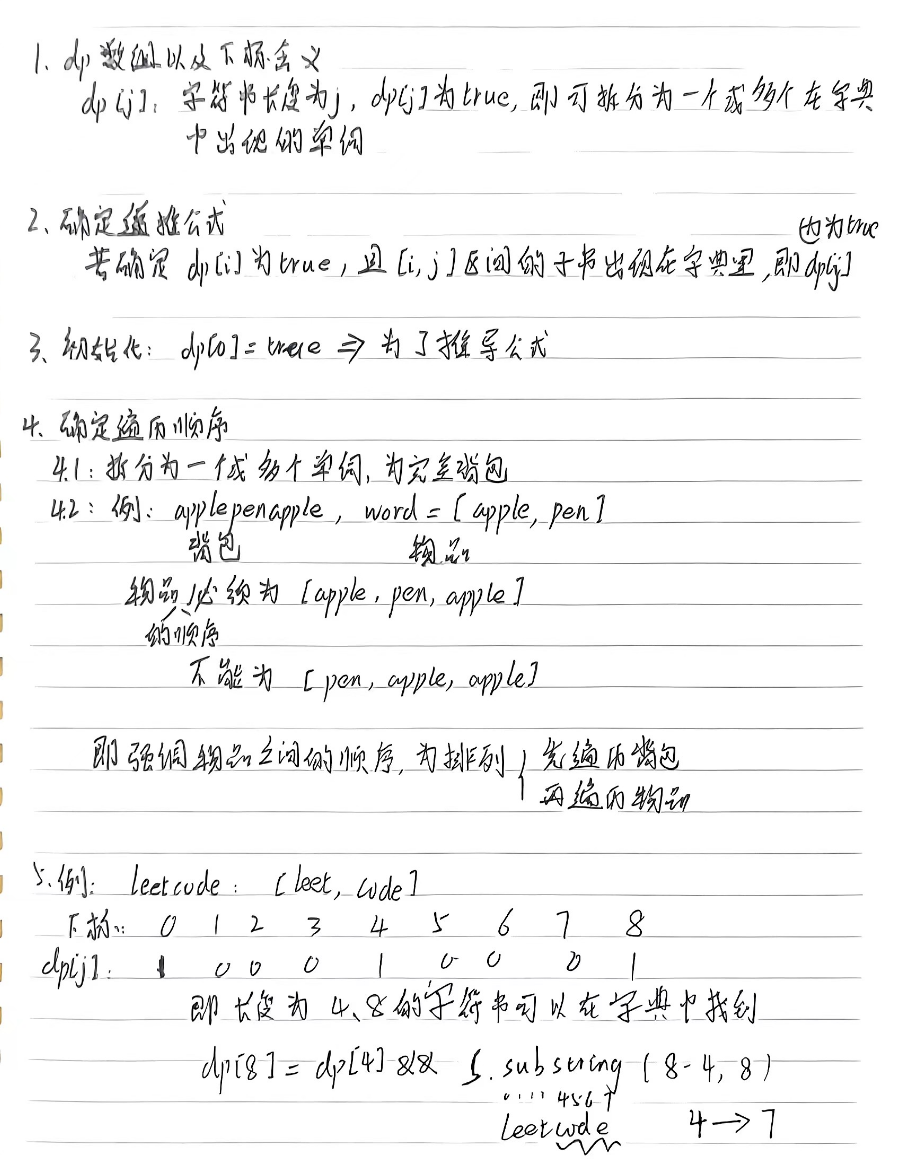 1、dp数组以及下标含义
dp[j]：字符串长度为j，dp[j]为true，即可拆分为一个或多个在字典
中出现的单词
2、确定递推公式
也为true
若确定 dp[i]为true，且[i,j]区间的子串出现在字典里，即dp[j]
3、初始化：dp[0]=true ⇒ 为了推导公式
4、确定遍历顺序
4.1：拆分为一个或多个单词，为完全背包
4.2：例：applepenapple，word=[apple，pen]
背包 物品
物品必须为 [apple，pen，apple]
的顺序
不能为 [pen，apple，apple]
即强调物品之间的顺序，为排列{先遍历背包
再遍历物品
5、例：leetcode：[leet，code]
下标：0 1 2 3 4 5 6 7 8
dp[j]：1 0 0 0 1 0 0 0 1
即长度为4、8的字符串可以在字典中找到
dp[8]=dp[4]&& s.substring(8-4,8)
····4567
leetcode 4→7